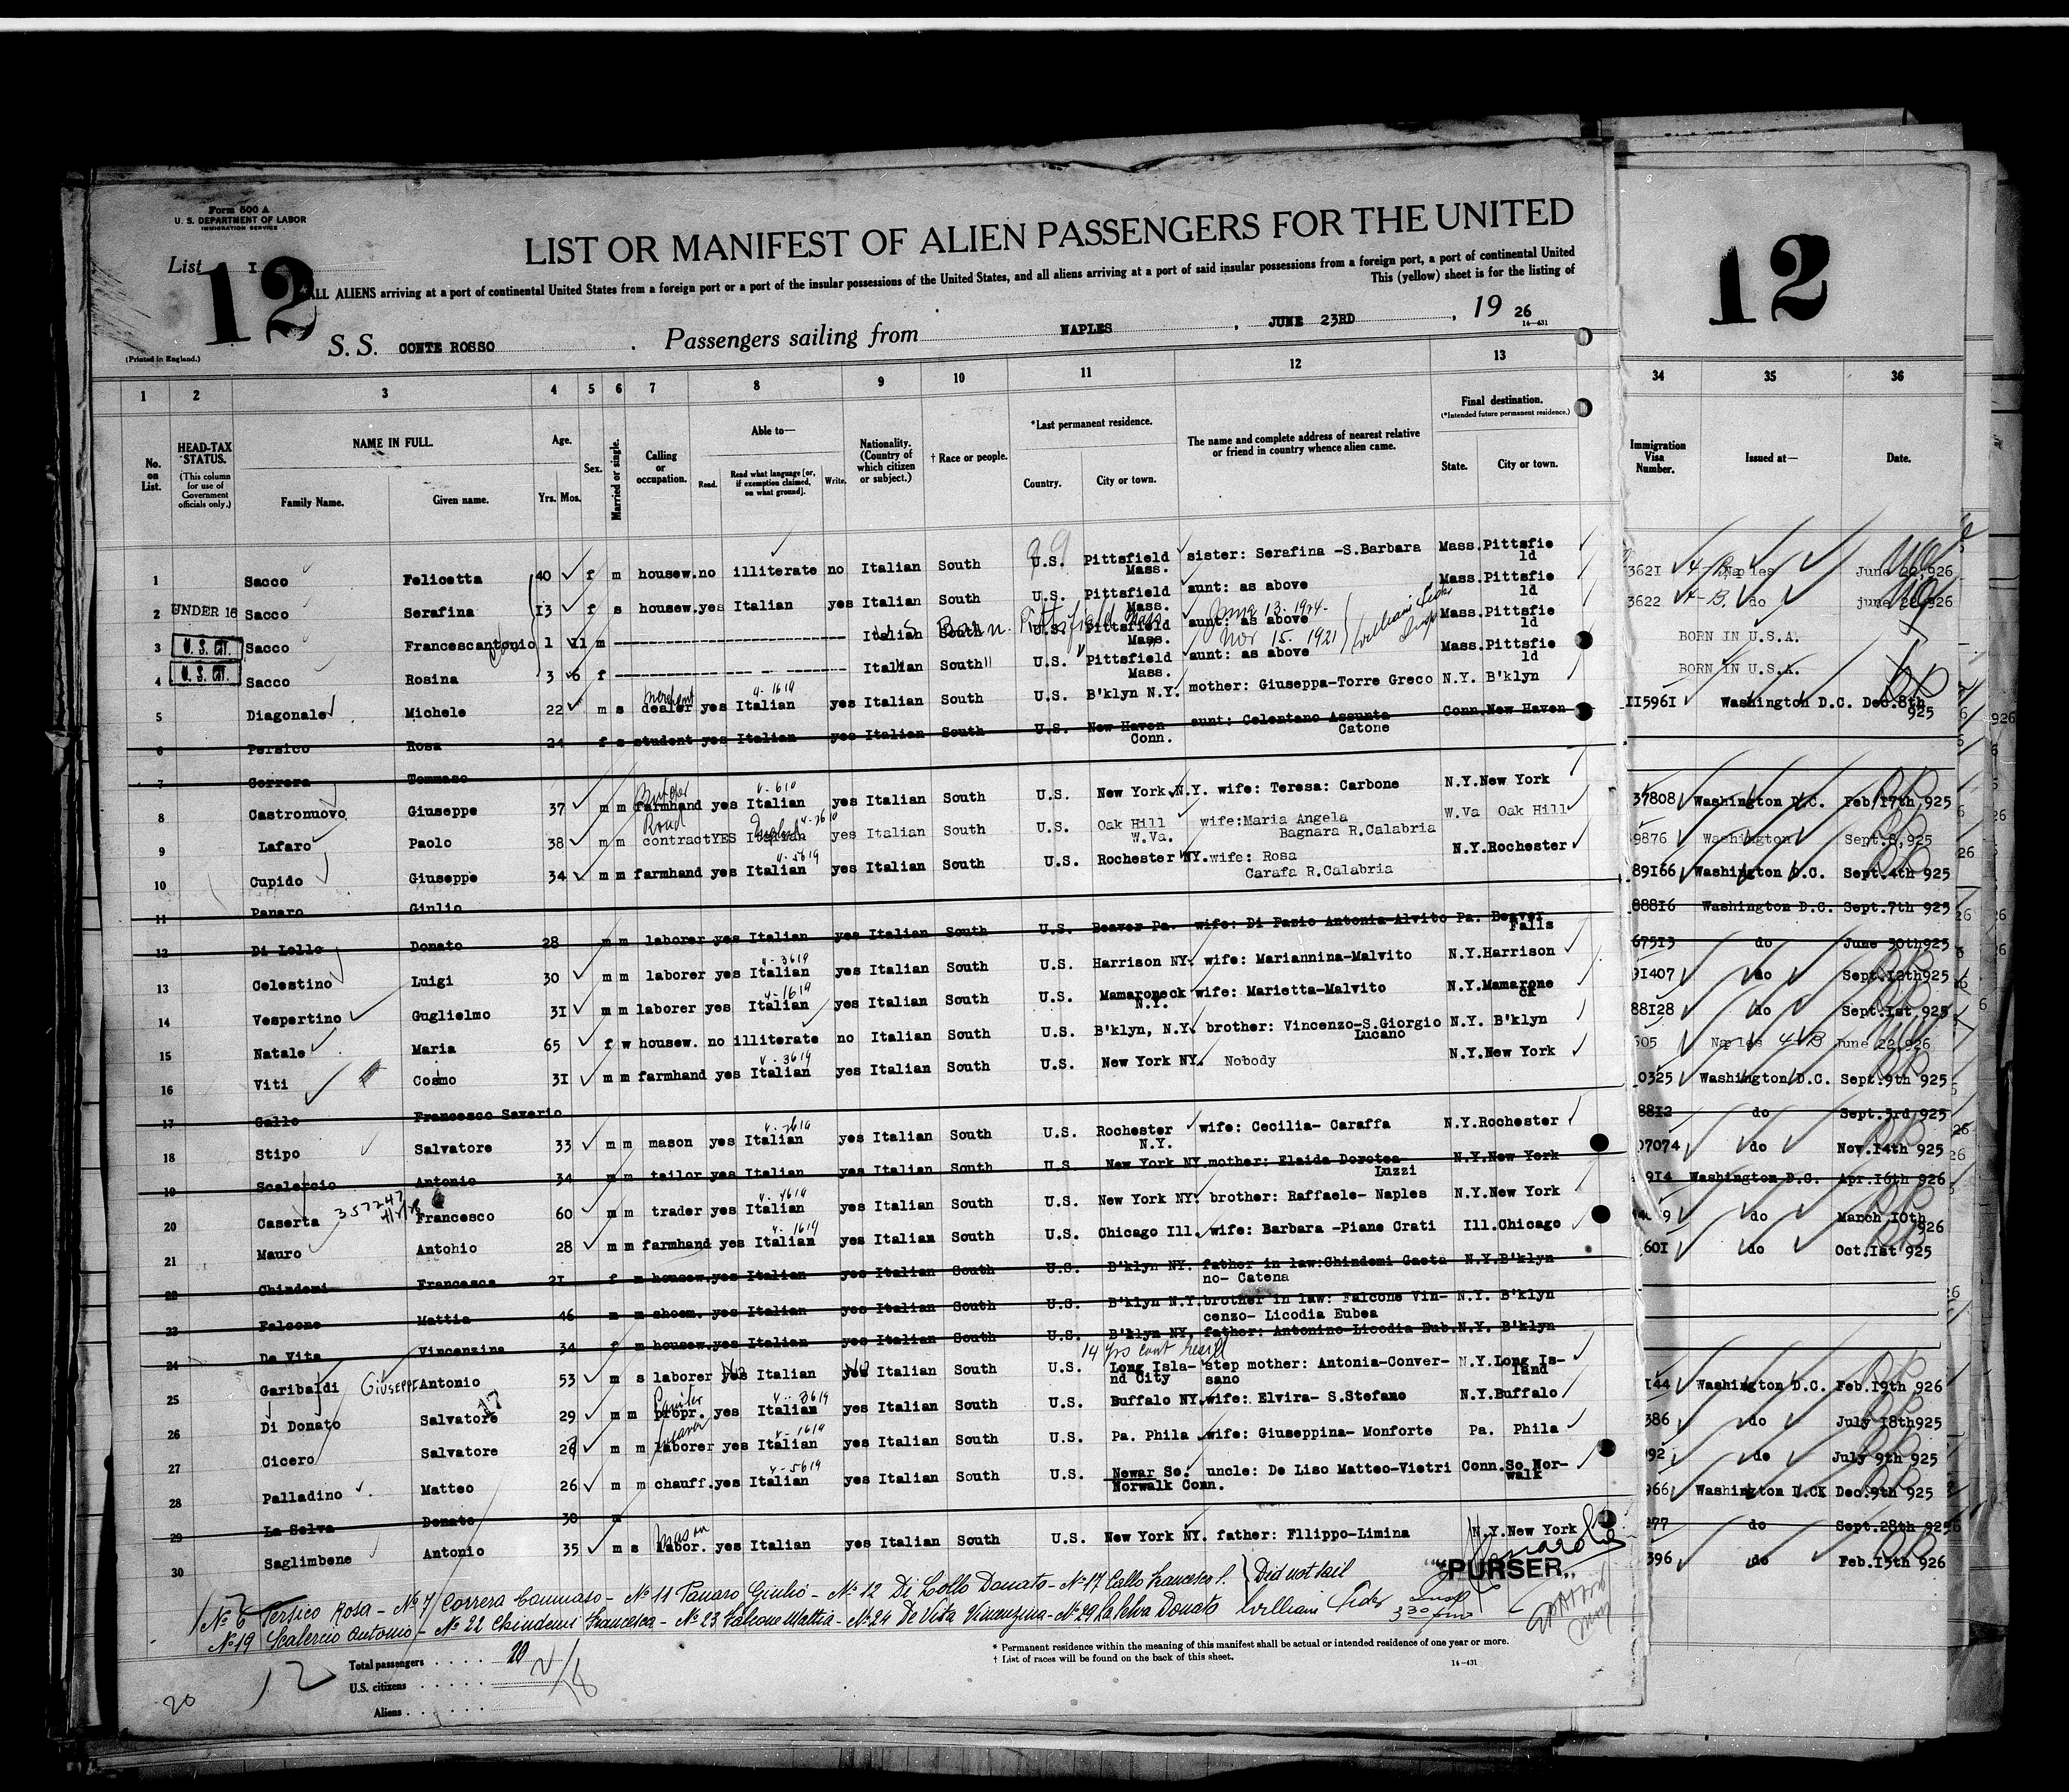 Form 500 A
U. S. DEPARTMENT OF LABOR
IMMIGRATION SERVICE
List I
12
12
LIST OR MANIFEST OF ALIEN PASSENGERS FOR THE UNITED
ALL ALIENS arriving at a port of continental United States from a foreign port or a port of the insular possessions of the United States, and all aliens arriving at a port of said insular possessions from a foreign port, a port of continental United
This (yellow) sheet is for the listing of
(Printed in England.)
S. S. CONTE ROSSO. Passengers sailing from NAPLES, JUNE 23RD, 19 26
14—431
1 2 3 4 5 6 7 8 9 10 11 12 13 34 35 36
No. on List.
HEAD-TAX STATUS. (This column for use of Government officials only.)
NAME IN FULL. Family Name. Given name.
Age. Yrs. Mos.
Sex.
Married or single.
Calling or occupation.
Able to— Read. Read what language [or, if exemption claimed, on what ground]. Write.
Nationality. (Country of which citizen or subject.)
† Race or people.
*Last permanent residence. Country. City or town.
The name and complete address of nearest relative or friend in country whence alien came.
Final destination. (*Intended future permanent residence.) State. City or town.
Immigration Visa Number.
Issued at—
Date.
1 Sacco Felicetta 40 f m housew. no illiterate no Italian South U.S. Pittsfield Mass. sister: Serafina -S.Barbara Mass. Pittsfield 3621 Naples June 22,926
2 UNDER 16 Sacco Serafina 13 f s housew. yes Italian yes Italian South U.S. Pittsfield Mass. aunt: as above Mass. Pittsfield 3622 do june 22,926
3 U. S. CIT. Sacco Francescantonio 1 11 m Italian South U.S. Pittsfield Mass. aunt: as above Mass. Pittsfield BORN IN U.S.A.
U.S. Born. Pittsfield Mass. June 13-1924- William
4 U. S. CIT. Sacco Rosina 3 6 f Italian South U.S. Pittsfield Mass. aunt: as above Mass. Pittsfield BORN IN U.S.A.
Nov 15. 1921
5 Diagonale Michele 22 m s merchant dealer yes Italian 4-1619 yes Italian South U.S. B'klyn N.Y. mother: Giuseppa-Torre Greco N.Y. B'klyn 115961 Washington D.C. Dec.8th 925
6 Persico Rosa 24 f s student yes Italian yes Italian South U.S. New Haven Conn. aunt: Celentano Assunta Catone Conn. New Haven
7 Correra Tommaso
8 Castronuovo Giuseppe 37 m m farmhand yes Italian 4-610 yes Italian South U.S. New York N.Y. wife: Teresa: Carbone N.Y. New York 37808 Washington D.C. Feb.17th 925
9 Lafaro Paolo 38 m m Road contract YES Italian English yes Italian South U.S. Oak Hill W.Va. wife:Maria Angela Bagnara R.Calabria W.Va Oak Hill 9876 Washington Sept.8,925
10 Cupido Giuseppe 34 m m farmhand yes Italian 4-5619 yes Italian South U.S. Rochester NY. wife: Rosa Carafa R.Calabria N.Y. Rochester 89166 Washington D.C. Sept.4th 925
11 Panaro Giulio 88816 Washington D.C. Sept.7th 925
12 Di Lollo Donato 28 m m laborer yes Italian yes Italian South U.S. Beaver Pa. wife: Di Fazio Antonia-Alvito Pa. Beaver Falls 67513 do June 30th925
13 Celestino Luigi 30 m m laborer yes Italian 4-3619 yes Italian South U.S. Harrison NY. wife: Mariannina-Malvito N.Y. Harrison 91407 do Sept.12th925
14 Vespertino Guglielmo 31 m m laborer yes Italian 4-1619 yes Italian South U.S. Mamaroneck N.Y. wife: Marietta-Malvito N.Y. Mamaroneck 88128 do Sept.1st 925
15 Natale Maria 65 f w housew. no illiterate no Italian South U.S. B'klyn, N.Y. brother: Vincenzo-S.Giorgio Lucano N.Y. B'klyn 505 Naples June 22,926
16 Viti Cosmo 31 m m farmhand yes Italian 4-3619 yes Italian South U.S. New York NY. Nobody N.Y. New York 0325 Washington D.C. Sept.9th 925
17 Gallo Francesco Saverio 8812 do Sept.3rd 925
18 Stipo Salvatore 33 m m mason yes Italian yes Italian South U.S. Rochester N.Y. wife: Cecilia- Caraffa N.Y. Rochester 07074 do Nov.14th 925
19 Scalercio Antonio 34 m m tailor yes Italian yes Italian South U.S. New York NY. mother: Elaida Dorotea Luzzi N.Y. New York 914 Washington D.C. Apr.16th 926
20 Caserta 357247 Francesco 60 m m trader yes Italian 4-4619 yes Italian South U.S. New York NY. brother: Raffaele- Naples N.Y. New York do March 10th 926
21 Mauro Antohio 28 m m farmhand yes Italian 4-1619 yes Italian South U.S. Chicago Ill. wife: Barbara -Piane Crati Ill. Chicago 601 do Oct.1st 925
22 Chindemi Francesca 21 f m housew. yes Italian yes Italian South U.S. B'klyn NY. father in law:Chindemi Gaetano- Catena N.Y. B'klyn
23 Falcone Mattia 46 m m shoem. yes Italian yes Italian South U.S. B'klyn N.Y. brother in law: Falcone Vincenzo- Licodia Eubea N.Y. B'klyn
24 De Vita Vincenzina 34 f m housew. yes Italian yes Italian South U.S. B'klyn NY. father: Antonino-Licodia Eub. N.Y. B'klyn
14 yrs cont resid
25 Garibaldi GIUSEPPE Antonio 53 m s laborer yes No Italian No Italian South U.S. Long Island City step mother: Antonia-Conversano N.Y. Long Island 144 Washington D.C. Feb.19th 926
26 Di Donato Salvatore 29 m m propr. yes Italian 4-3619 yes Italian South U.S. Buffalo NY. wife: Elvira- S.Stefano N.Y. Buffalo 386 do July 18th925
27 Cicero Salvatore 26 m m laborer yes Italian 4-1619 yes Italian South U.S. Pa. Phila wife: Giuseppina- Monforte Pa. Phila 092 do July 9th 925
28 Palladino Matteo 26 m m chauff. yes Italian 4-5619 yes Italian South U.S. Newar So. Norwalk Conn. uncle: De Liso Matteo-Vietri Conn. So Norwalk 966 Washington D.CK Dec.9th 925
29 La Selva Donato 30 m 277 do Sept.28th 925
30 Saglimbene Antonio 35 m s mason labor. yes Italian yes Italian South U.S. New York NY. father: Fllippo-Limina N.Y. New York 396 do Feb.15th 926
"PURSER"
Nº 6 Persico Rosa - Nº 7 Correra Tommaso - Nº 11 Panaro Giulio - Nº 12 Di Lollo Donato - Nº 17 Gallo Francesco S. } Did not sail
Nº 19 Scalercio Antonio - Nº 22 Chindemi Francesca - Nº 23 Falcone Mattia - Nº 24 De Vita Vincenzina - Nº 29 La Selva Donato William
* Permanent residence within the meaning of this manifest shall be actual or intended residence of one year or more.
† List of races will be found on the back of this sheet.
14—431
Total passengers 20
U.S. citizens 2
Aliens 18
20 12